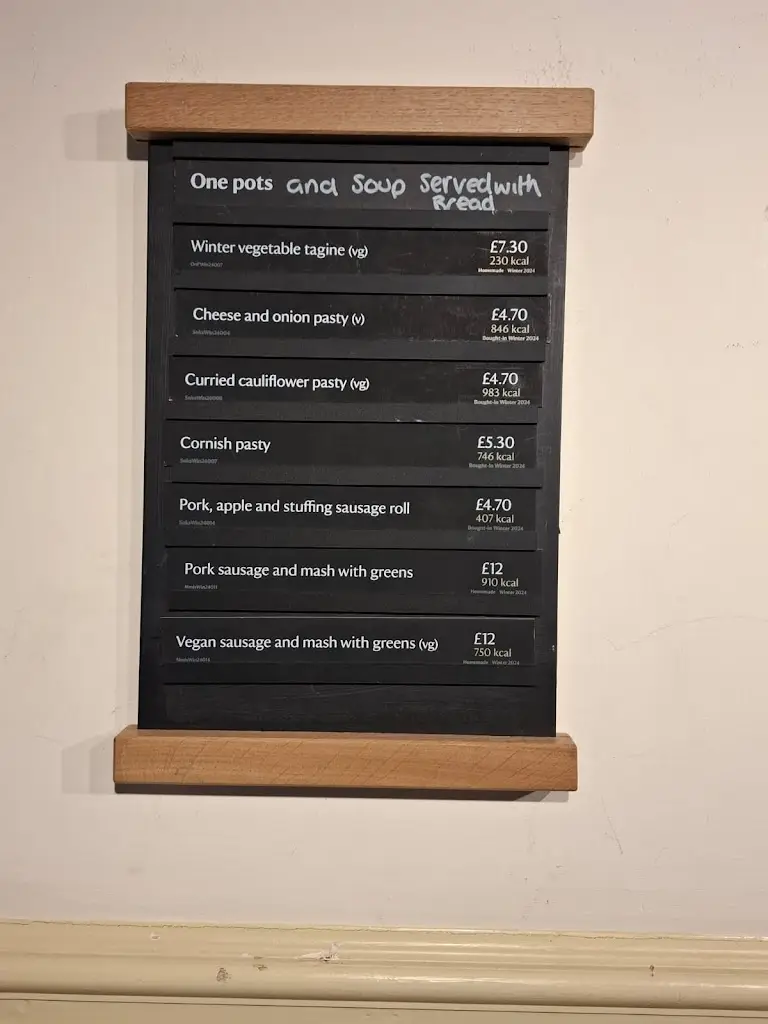 One pots and Soup Served with
Bread
Winter vegetable tagine (vg)
£7.30
230 kcal
Homemade Winter 2024
Cheese and onion pasty (v)
£4.70
846 kcal
Bought-in Winter 2024
Curried cauliflower pasty (vg)
£4.70
983 kcal
Bought-in Winter 2024
Cornish pasty
£5.30
746 kcal
Bought-in Winter 2024
Pork, apple and stuffing sausage roll
£4.70
407 kcal
Bought-in Winter 2024
Pork sausage and mash with greens
£12
910 kcal
Homemade Winter 2024
Vegan sausage and mash with greens (vg)
£12
750 kcal
Homemade Winter 2024